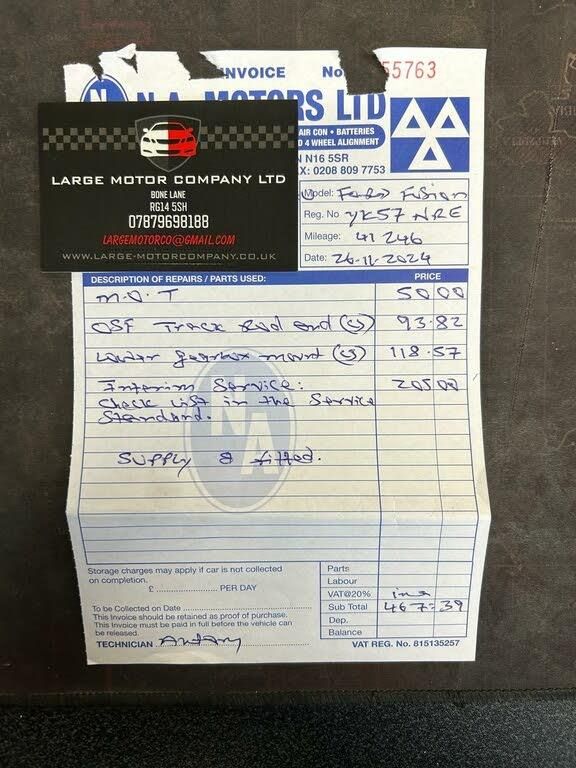 INVOICE No. 55763
N.A. MOTORS LTD
AIR CON • BATTERIES
D 4 WHEEL ALIGNMENT
N N16 5SR
X: 0208 809 7753
LARGE MOTOR COMPANY LTD
BONE LANE
RG14 5SH
07879698188
LARGEMOTORCO@GMAIL.COM
WWW.LARGE-MOTORCOMPANY.CO.UK
Model: Ford Fusion
Reg. No YK57 NRE
Mileage: 41246
Date: 26-11-2024
DESCRIPTION OF REPAIRS / PARTS USED: PRICE
M.O.T 50 00
OSF Track Rod end (S) 93.82
Lower gearbox mount (S) 118.57
Interim Service: 205 00
Check List in the Service
Standard.
NA
Supply & fitted.
Storage charges may apply if car is not collected
on completion.
£ ........................ PER DAY
To be Collected on Date
This Invoice should be retained as proof of purchase.
This Invoice must be paid in full before the vehicle can
be released.
TECHNICIAN Antony
Parts
Labour
VAT@20% inc
Sub Total 467=39
Dep.
Balance
VAT REG. No. 815135257